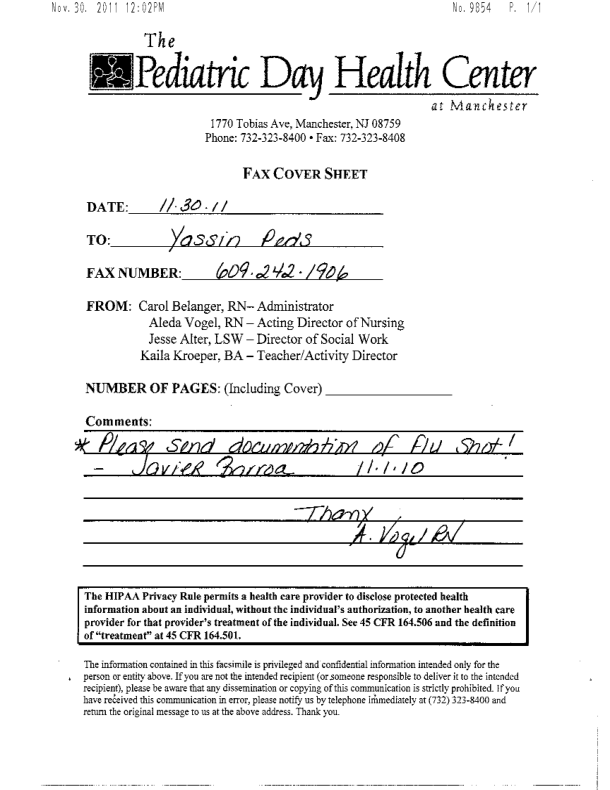 Nov. 30. 2011 12:02PM No. 9854 P. 1/1
The
Pediatric Day Health Center
at Manchester
1770 Tobias Ave, Manchester, NJ 08759
Phone: 732-323-8400 • Fax: 732-323-8408
FAX COVER SHEET
DATE: 11.30.11
TO: Yassin Peds
FAX NUMBER: 609.242.1906
FROM: Carol Belanger, RN-- Administrator
Aleda Vogel, RN – Acting Director of Nursing
Jesse Alter, LSW – Director of Social Work
Kaila Kroeper, BA – Teacher/Activity Director
NUMBER OF PAGES: (Including Cover)
Comments:
* Please send documentation of flu shot!
- Javier 11.1.10
Thanx
A. Vogel RN
The HIPAA Privacy Rule permits a health care provider to disclose protected health
information about an individual, without the individual's authorization, to another health care
provider for that provider's treatment of the individual. See 45 CFR 164.506 and the definition
of "treatment" at 45 CFR 164.501.
The information contained in this facsimile is privileged and confidential information intended only for the
person or entity above. If you are not the intended recipient (or someone responsible to deliver it to the intended
recipient), please be aware that any dissemination or copying of this communication is strictly prohibited. If you
have received this communication in error, please notify us by telephone immediately at (732) 323-8400 and
return the original message to us at the above address. Thank you.